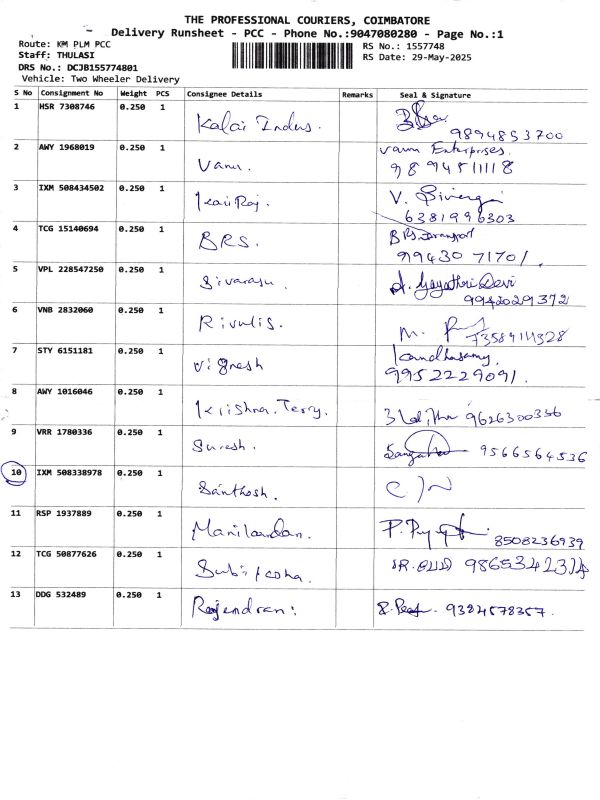 THE PROFESSIONAL COURIERS, COIMBATORE
Delivery Runsheet - PCC - Phone No.:9047080280 - Page No.:1
Route: KM PLM PCC
RS No.: 1557748
Staff: THULASI
RS Date: 29-May-2025
DRS No.: DCJB155774801
Vehicle: Two Wheeler Delivery
S No Consignment No Weight PCS Consignee Details Remarks Seal & Signature
1 HSR 7308746 0.250 1 Kalai Indus. 9894853700
2 AWY 1968019 0.250 1 Vanu. Vanu Enterprises.
9894511118
3 IXM 508434502 0.250 1 V.
6381996303
4 TCG 15140694 0.250 1 BRS. BRS. Transport
9943071701
5 VPL 228547250 0.250 1 Sivarasu. Gayathri Devi
9942029372
6 VNB 2832060 0.250 1 Rivulis. M.
7 STY 6151181 0.250 1 Vignesh Kandhasamy.
9952229091.
8 AWY 1016046 0.250 1 Krishna. Terry. 9626300336
9 VRR 1780336 0.250 1 Suresh. 9566564536
10 IXM 508338978 0.250 1 Santhosh.
11 RSP 1937889 0.250 1 Manikandan. P. 8508236939
12 TCG 50877626 0.250 1
13 DDG 532489 0.250 1 Rajendran. 9384578357.